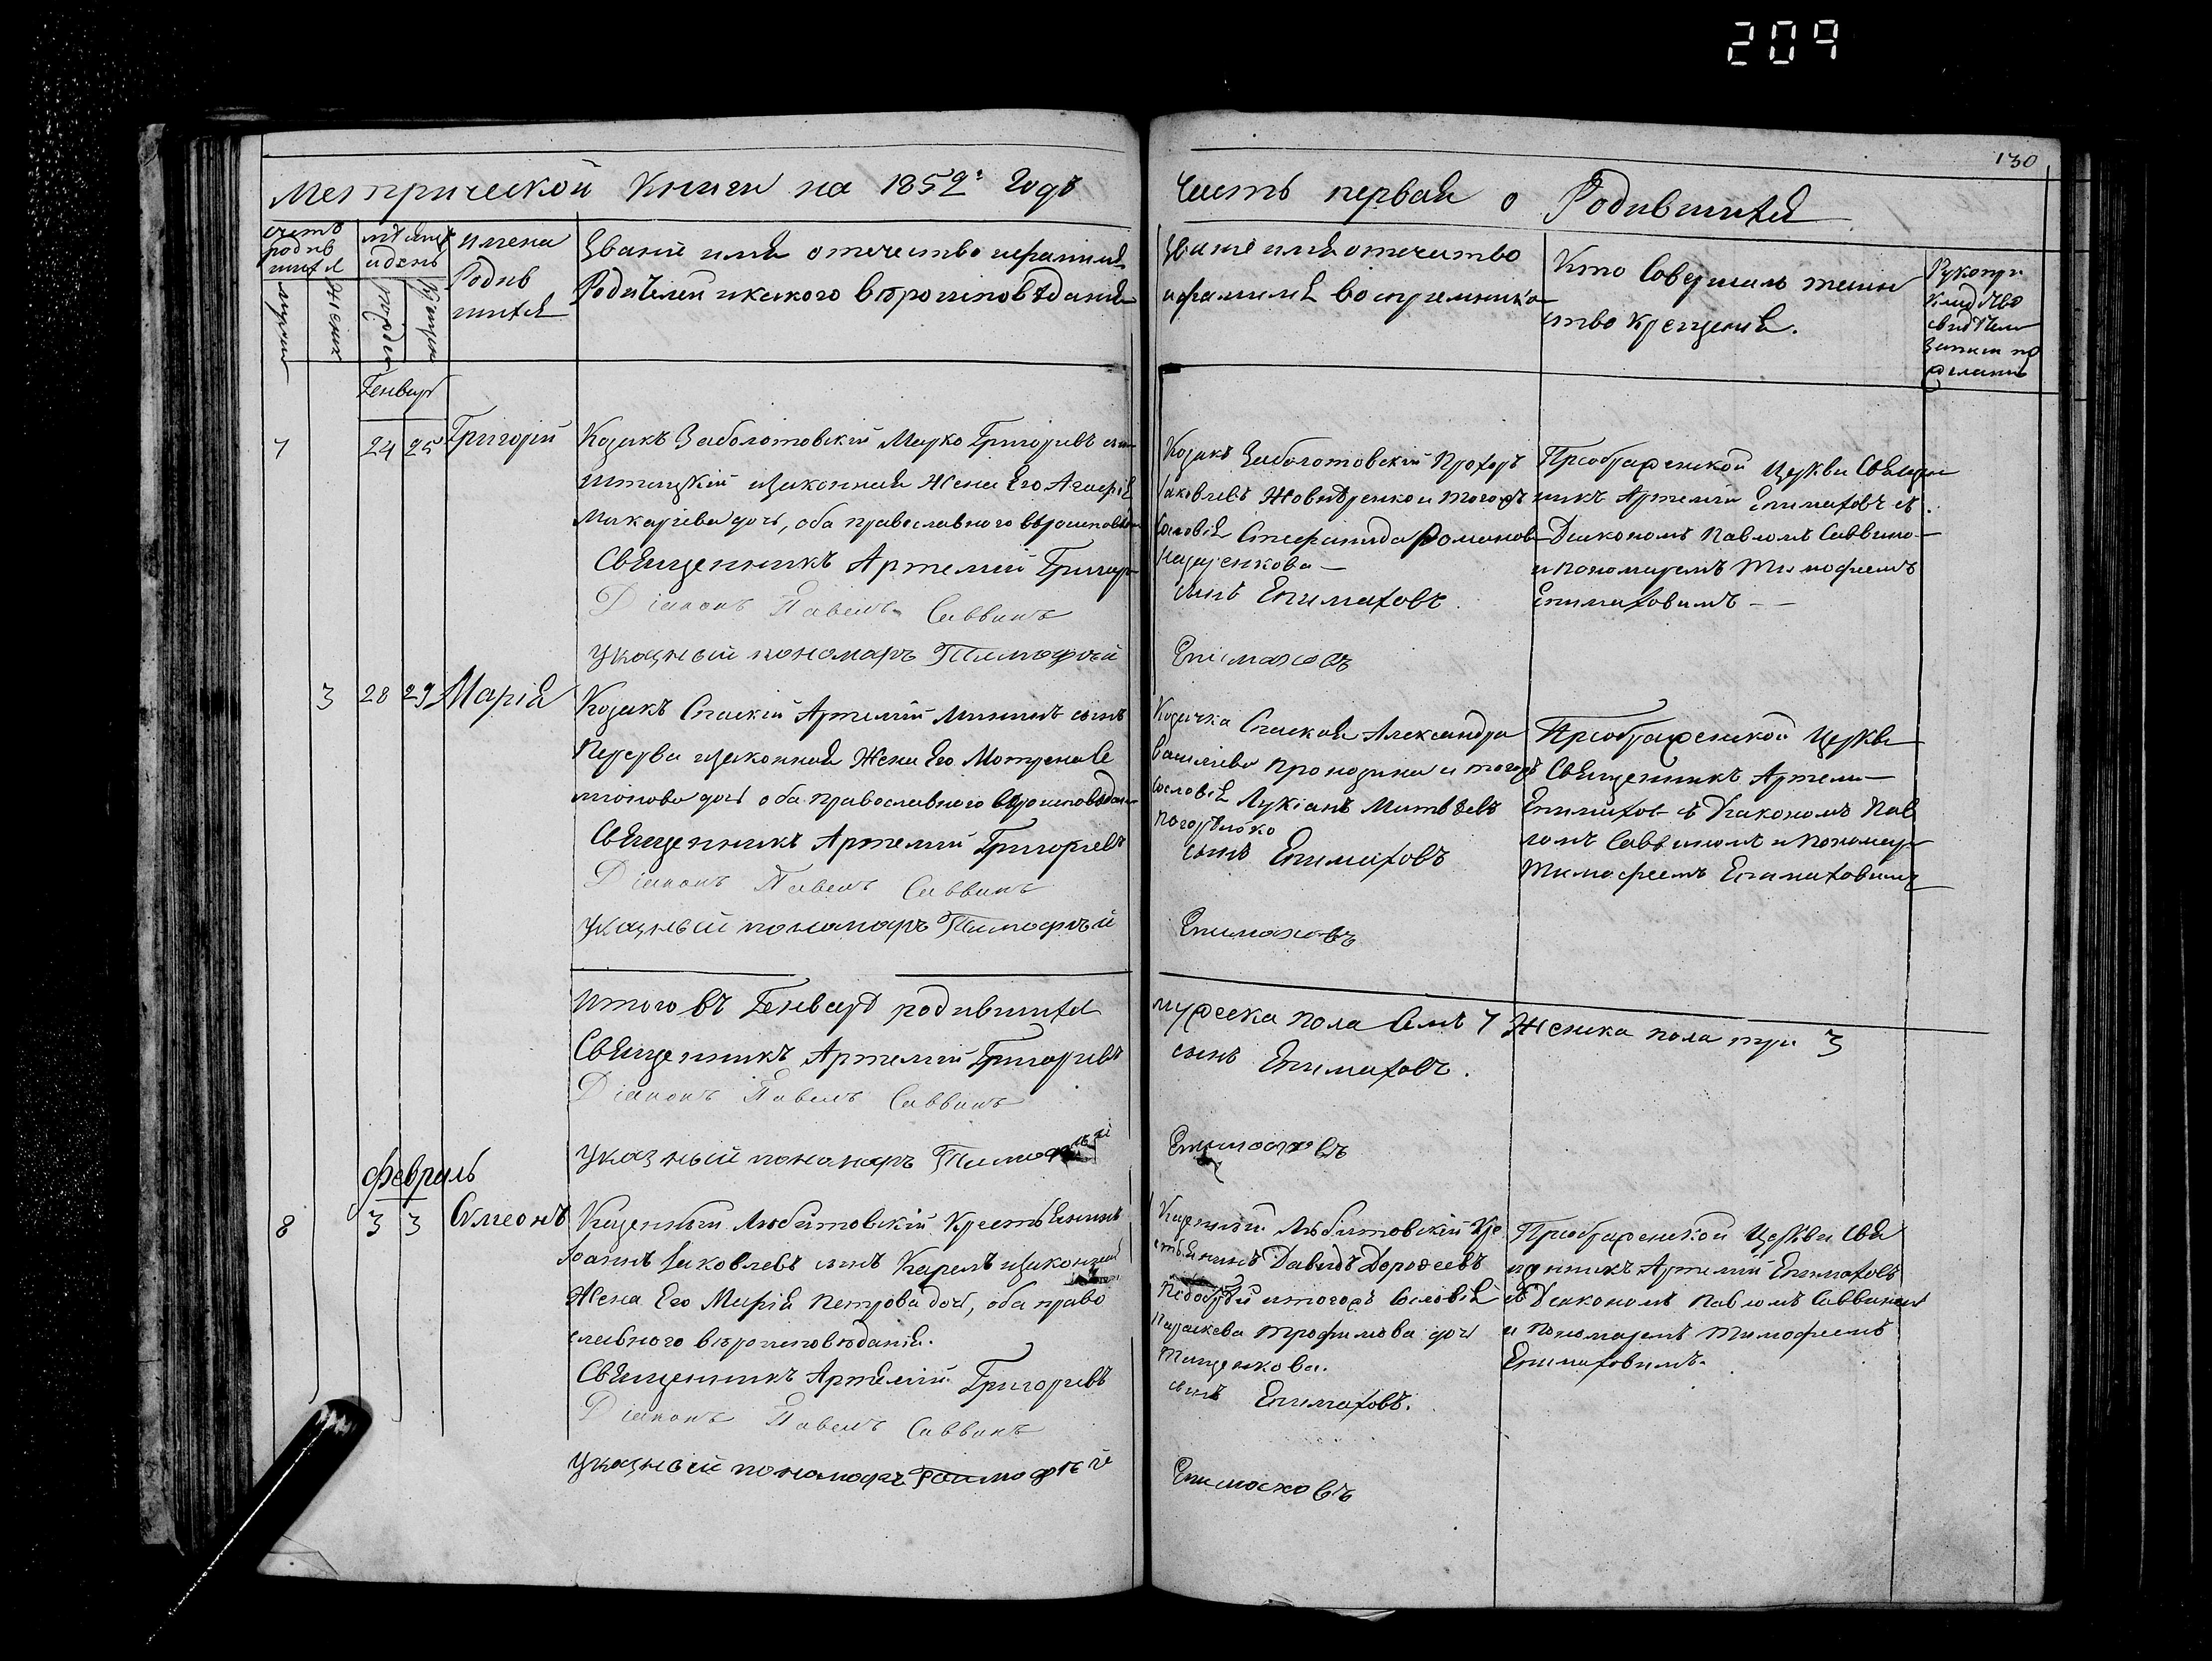 209
130
Метрической Книги на 1852й Годъ
Часть первая о Родившихся
счетъ родив шихся
мѣсяцъ и день
имена Родив шихся
Званіе имя отечество и фамилия
Родителей и какого вѣроисповѣданія
Званіе имя отечество
и фамилія воспремнико
Кто Совершалъ таин
ство крещенія.
Рукопри
кладство
свидѣтел
записи по
желанію
Генварь
7 24 25 Григорій
Козакъ Заболотовскій Марко Григориевъ сынъ
изаконная Жена Его Агафія
Макариева дочь, оба православного вѣроисповѣ
Священникъ Артемій Григор
Діаконъ Павелъ Саввинъ
Указный пономаръ Тимофѣй
Козакъ Заболотовскій Прохоръ
Іаковлевъ и тогожъ
сословія Стефанида Романов
сынъ Епимаховъ
Епимаховъ
Преображенской Церкви Священ
никъ Артемій Епимаховъ съ
Діакономъ Павломъ Саввино
и пономаремъ Тимофеемъ
Епимаховимъ
3 28 29 Марія
Козакъ Спаскій Артемій сынъ
изаконная Жена Его Мотрона
дочь оба православного вѣроисповѣдан
Священникъ Артемій Григориевъ
Діаконъ Павелъ Саввинъ
Указный пономаръ Тимофѣй
Козачка Спаская Александра
Василиева и тогожъ
сословія Лукіанъ Матвѣевъ
сынъ Епимаховъ
Епимаховъ
Преображенской Церкви
Священникъ Артеми
Епимахов съ Діакономъ Пав
ломъ Саввиномъ и Пономар
Тимофеемъ Епимаховимъ
Итого въ Генварѣ родившихся
мужеска пола Семъ 7 Женска пола три 3
Священникъ Артемій Григориевъ
сынъ Епимаховъ.
Діаконъ Павелъ Саввинъ
Указный пономаръ Тимофѣй
Епимаховъ
Февраль
8 3 3 Симеонъ
Казенный Любитовскій Крестьянинъ
Іоаннъ Іаковлевъ сынъ изаконная
Жена Его Марія Петрова дочь, оба право
славного вѣроисповѣданія.
Священникъ Артемій Григориевъ
Діаконъ Павелъ Саввинъ
Указный пономаръ Тимофѣй
Казенный Любитовскій Кре
стьянинъ Давидъ Дорофеевъ
и тогожъ Сословія
Параскева Трофимова дочь
Тищенкова.
сынъ Епимаховъ.
Епимаховъ
Преображенской Церкви Свя
щенникъ Артемій Епимаховъ
съ Діакономъ Павломъ Саввином
и Пономаремъ Тимофеемъ
Епимаховимъ.